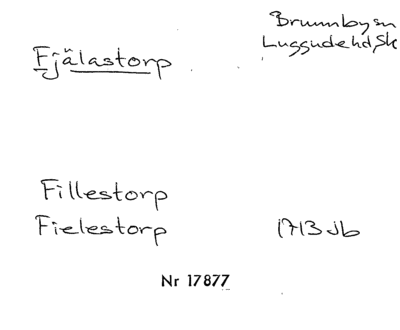 Brunnby sn
Luggude hd, Sk
Fjälastorp
Fillestorp
Fielestorp 1713 Jb
Nr 17877